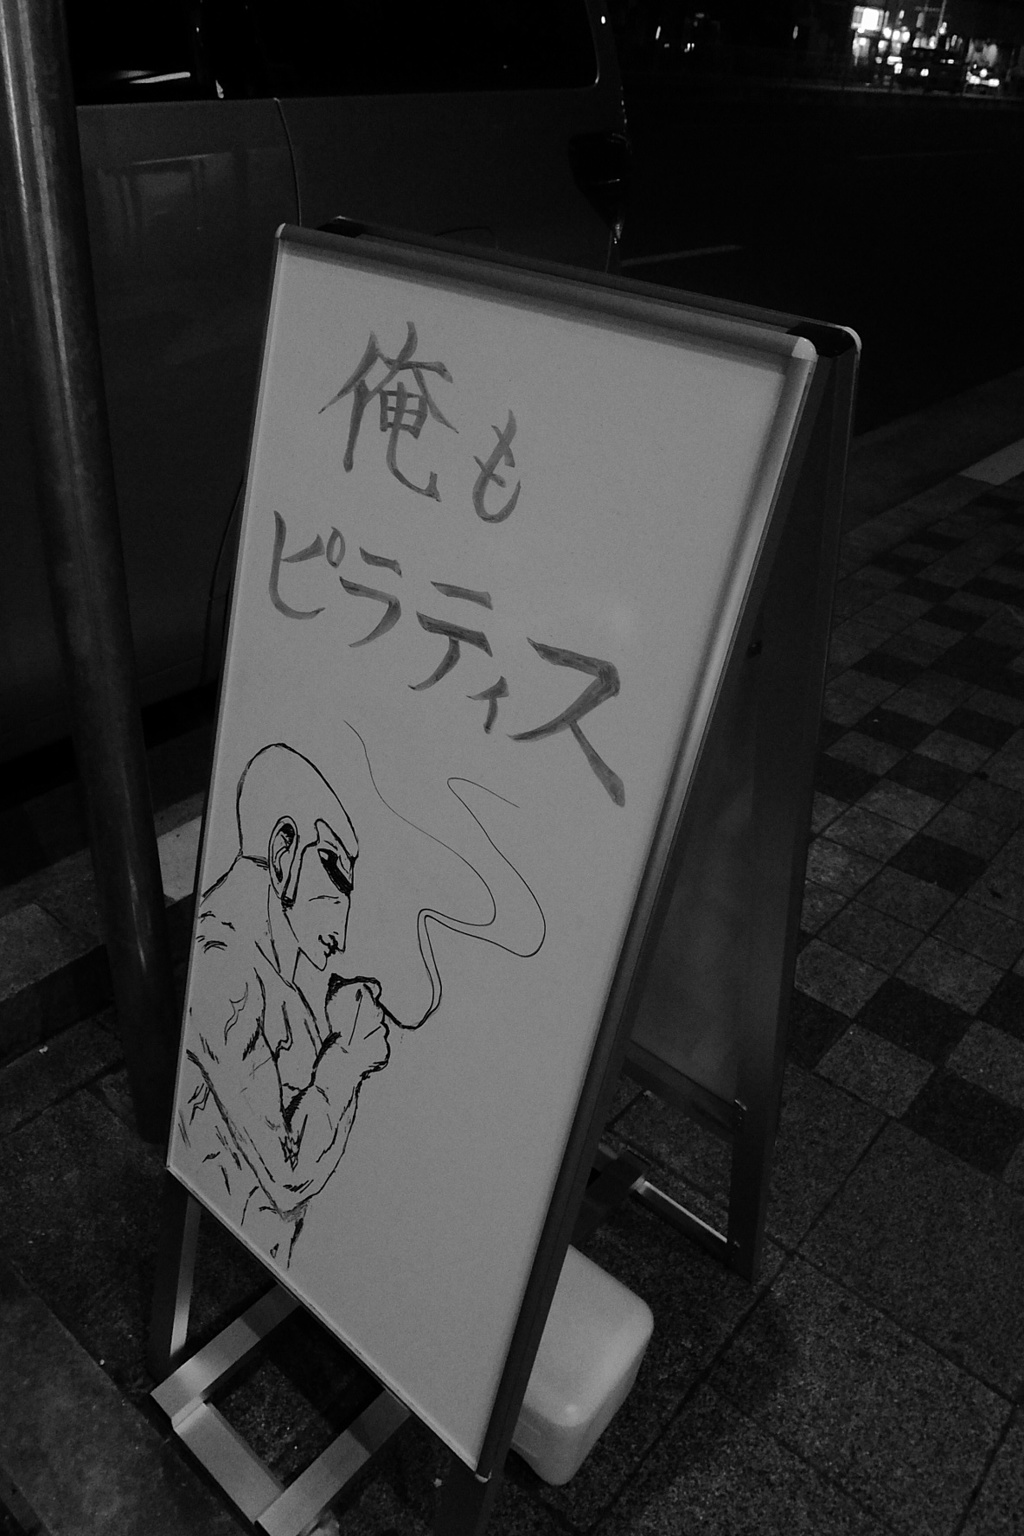 俺も
ピラティス